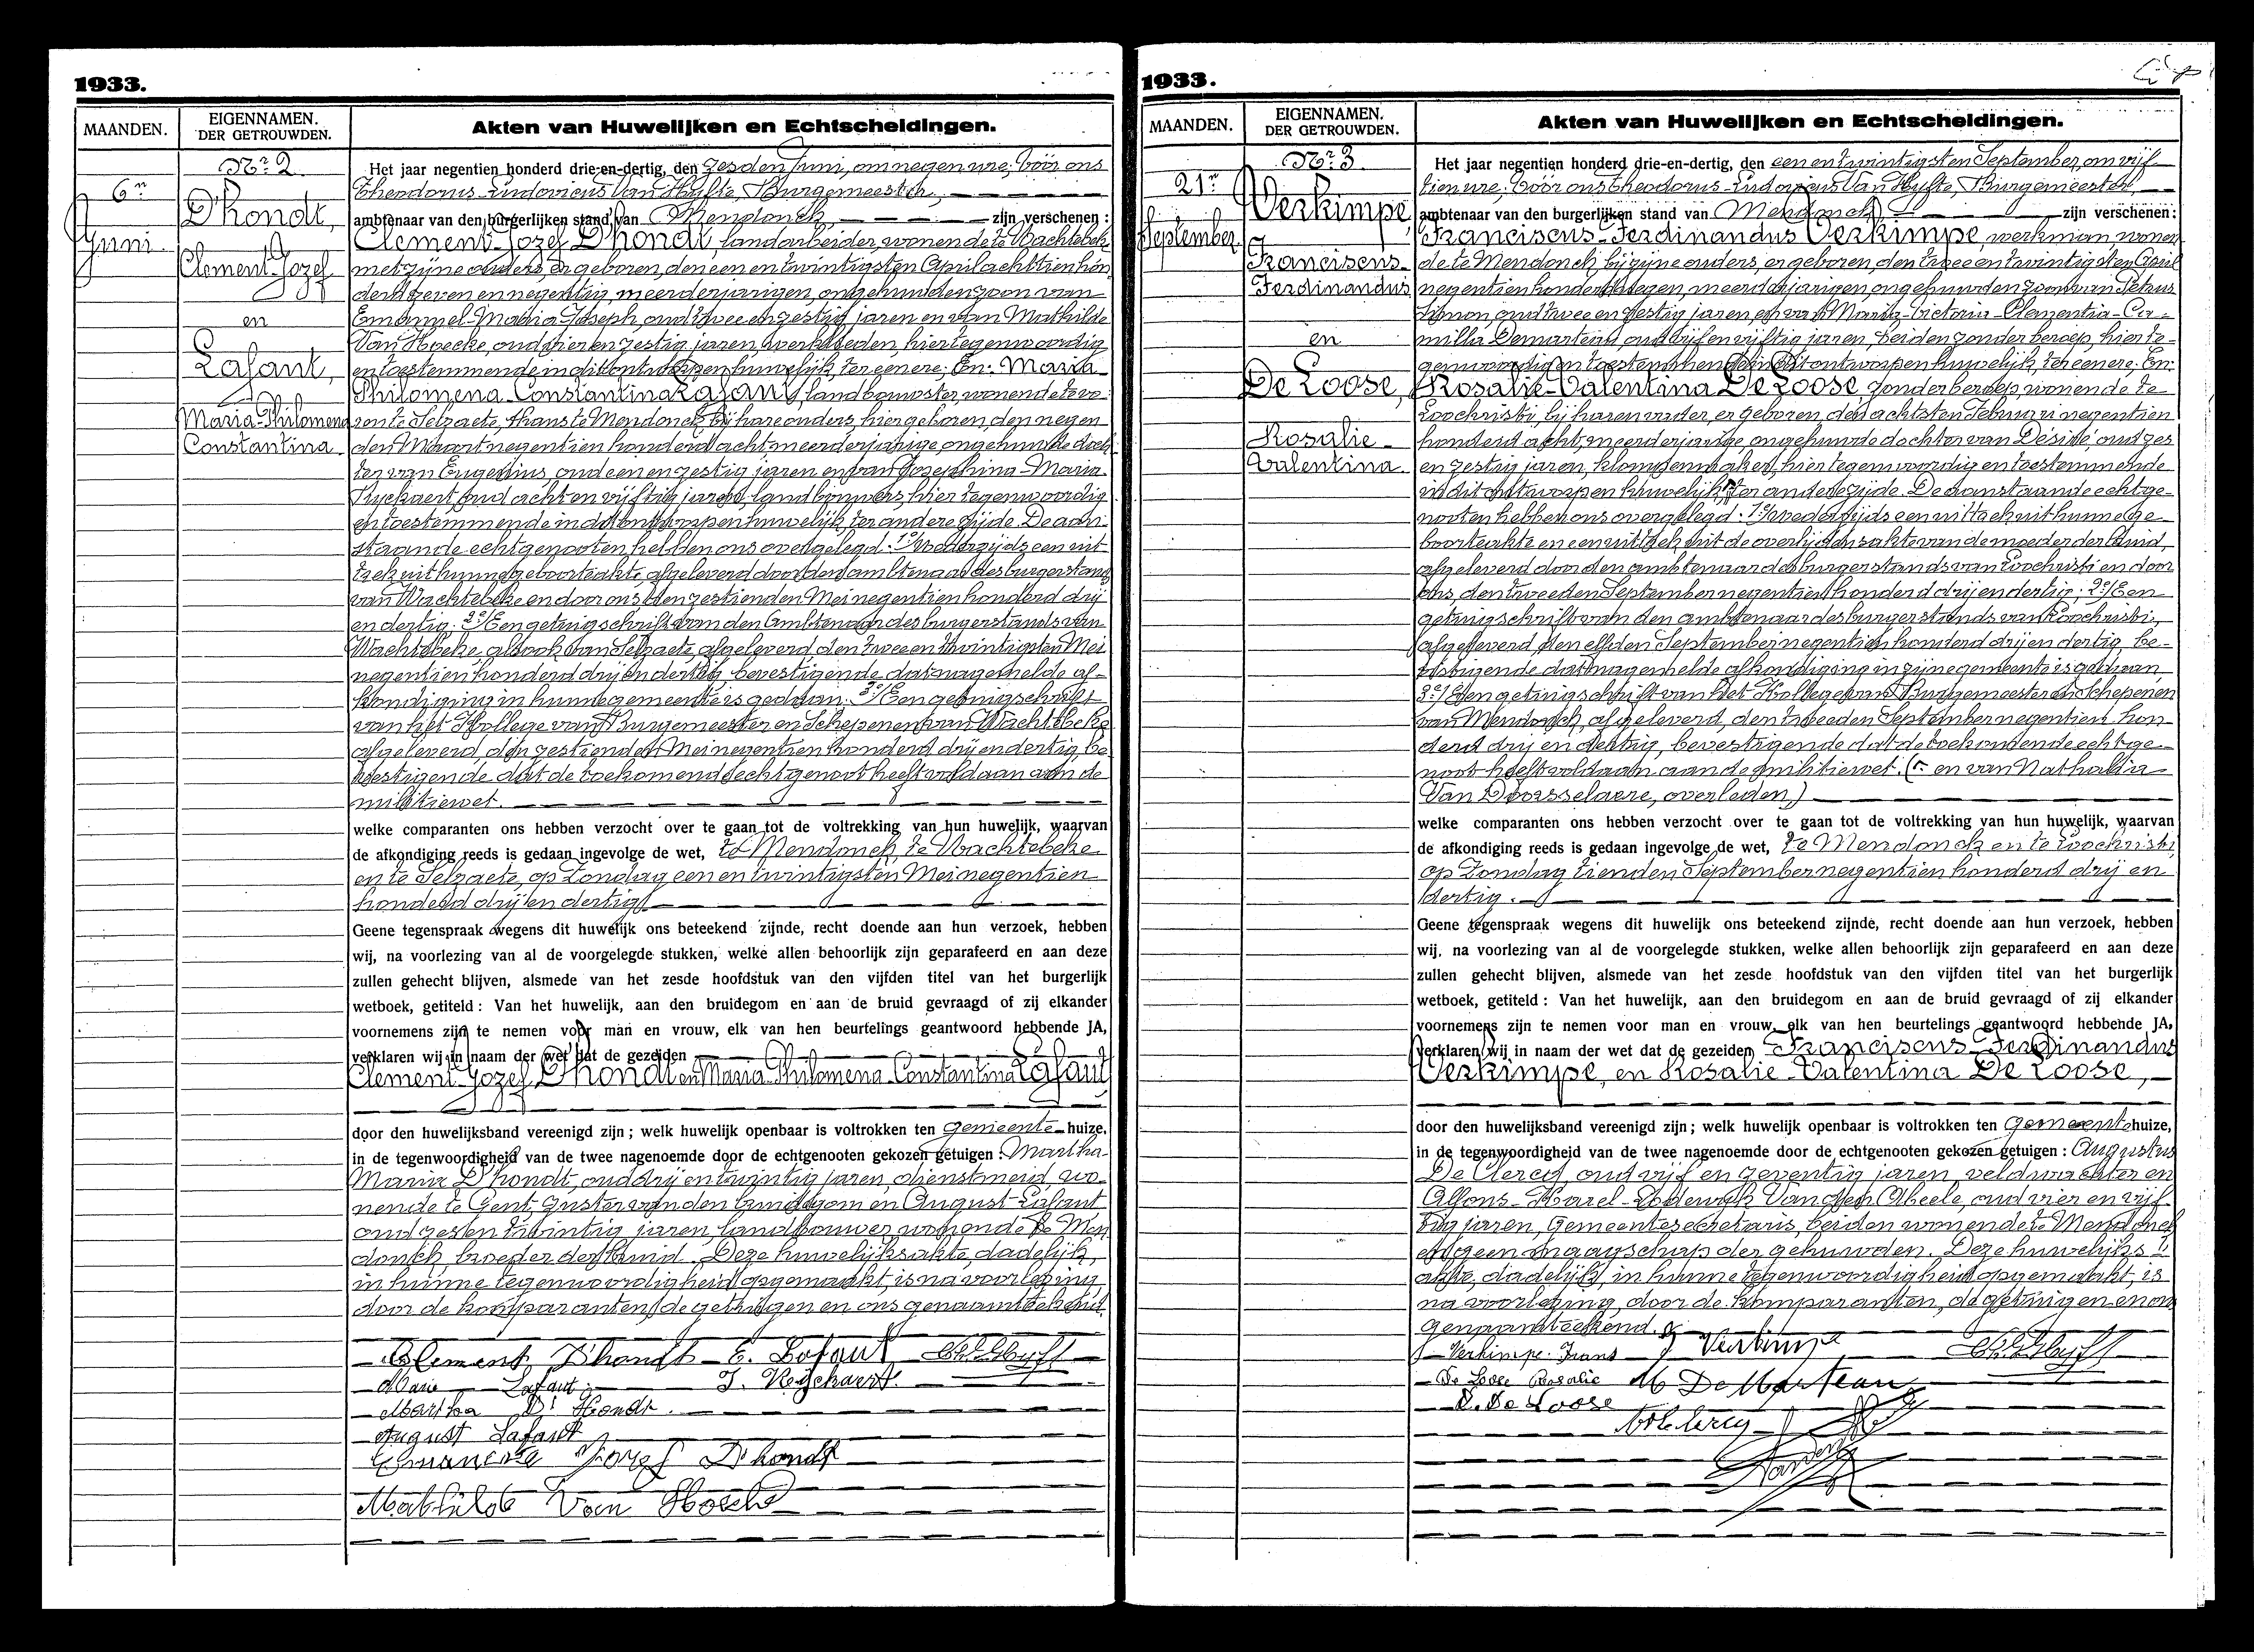 1933.
MAANDEN.
EIGENNAMEN.
DER GETROUWDEN.
Akten van Huwelijken en Echtscheidingen.
Nr 2
6n
Juni
D'hondt,
Clement-Jozef
en
Lafaut,
Maria-Philomena
Constantina
Het jaar negentien honderd drie-en-dertig, den zesden Juni, om negen ure, vóór ons
Theodorus-Ludovicus Van Hyfte, Burgemeester,
ambtenaar van den burgerlijken stand van Mendonck zijn verschenen:
Clement-Jozef D'hondt, landarbeider, wonende te Wachtebeke
met zijne ouders, er geboren, den een en twintigsten April achttien hon
derd zeven en negentig, meerderjarigen, ongehuwden zoon van
Emanuel-Maria-Joseph, oud twee en zestig jaren en van Mathilde
Van Hoecke, oud vier en zestig jaren, werklieden, hier tegenwoordig
en toestemmende in dit ontworpen huwelijk, ter eenere; En: Maria
Philomena-Constantina Lafaut, landbouwster, wonende te vo
ren te Selzaete, thans te Mendonck bij hare ouders, hier geboren, den negen
den Maart negentien honderd acht, meerderjarige, ongehuwde doch
ter van Eugenius, oud een en zestig jaren en van Josephina-Maria
Ryckaert, oud acht en vijftig jaren, landbouwers, hier tegenwoordig
en toestemmende in dit ontworpen huwelijk, ter andere zijde. De aan
staande echtgenooten hebben ons overgelegd: 1°/ Wederzijds een uit
trek uit hunne geboorteakte, afgeleverd door den ambtenaar des burgerstands
van Wachtebeke en door ons, den zestienden Mei negentien honderd drij
en dertig. 2°/ Een getuigschrift van den ambtenaar des burgerstands van
Wachtebeke, alsook van Selzaete, afgeleverd, den twee en twintigsten Mei
negentien honderd drij en dertig, bevestigende dat nagemelde af-
kondiging in hunne gemeente is gedaan. 3°/ Een getuigschrift
van het Kollege van Burgemeester en Schepenen van Wachtebeke
afgeleverd, den zestienden Mei negentien honderd drij en dertig, be
vestigende dat de toekomende echtgenoot heeft voldaan aan de
militiewet.
welke comparanten ons hebben verzocht over te gaan tot de voltrekking van hun huwelijk, waarvan
de afkondiging reeds is gedaan ingevolge de wet, te Mendonck, te Wachtebeke
en te Selzaete, op Zondag een en twintigsten Mei negentien
honderd drij en dertig
Geene tegenspraak wegens dit huwelijk ons beteekend zijnde, recht doende aan hun verzoek, hebben
wij, na voorlezing van al de voorgelegde stukken, welke allen behoorlijk zijn geparafeerd en aan deze
zullen gehecht blijven, alsmede van het zesde hoofdstuk van den vijfden titel van het burgerlijk
wetboek, getiteld: Van het huwelijk, aan den bruidegom en aan de bruid gevraagd of zij elkander
voornemens zijn te nemen voor man en vrouw, elk van hen beurtelings geantwoord hebbende JA,
verklaren wij in naam der wet dat de gezeiden
Clement-Jozef D'hondt en Maria-Philomena-Constantina Lafaut
door den huwelijksband vereenigd zijn; welk huwelijk openbaar is voltrokken ten gemeente-huize,
in de tegenwoordigheid van de twee nagenoemde door de echtgenooten gekozen getuigen: Martha-
Maria D'hondt, oud drij en twintig jaren, dienstmeid, wo-
nende te Gent, zuster van den bruidegom en August Lafaut
oud zes en twintig jaren, landbouwer, wonende te Men
donck, broeder der bruid. Deze huwelijksakte, dadelijk,
in hunne tegenwoordigheid opgemaakt, is na voorlezing,
door de komparanten, de getuigen en ons genaamteekend.
Clement D'hondt E. Lafaut
Marie Lafaut J. Ryckaert
Martha D'Hondt
August Lafaut
Jozef D'hondt
Mathilde Van Hoecke
1933.
MAANDEN.
EIGENNAMEN.
DER GETROUWDEN.
Akten van Huwelijken en Echtscheidingen.
Nr 3
21n
September
Verkimpe,
Franciscus-
Ferdinandus
en
De Loose,
Rosalie-
Valentina
Het jaar negentien honderd drie-en-dertig, den een en twintigsten September, om vijf
tien ure, vóór ons Theodorus-Ludovicus Van Hyfte, Burgemeester,
ambtenaar van den burgerlijken stand van Mendonck zijn verschenen:
Franciscus-Ferdinandus Verkimpe, werkman, wonen
de te Mendonck, bij zijne ouders, er geboren, den twee en twintigsten April
negentien honderd negen, meerderjarigen, ongehuwden zoon van Petrus
Simon, oud twee en zestig jaren, en van Maria-Victoria-Clementia-Ca-
milla Demarteau, oud vijf en vijftig jaren, beiden zonder beroep, hier te-
genwoordig en toestemmende in dit ontworpen huwelijk, ter eenere; En:
Rosalie-Valentina De Loose, zonder beroep, wonende te
Loochristi, bij haren vader, er geboren, den achtsten Februari negentien
honderd acht, meerderjarige, ongehuwde dochter van Désiré, oud zes
en zestig jaren, klompenmaker, hier tegenwoordig en toestemmende
in dit ontworpen huwelijk, ter andere zijde. De aanstaande echtge-
nooten hebben ons overgelegd: 1°/ Wederzijds een uittrek uit hunne ge
boorteakte en een uittrek uit de overlijdensakte van de moeder der bruid,
afgeleverd door den ambtenaar des burgerstands van Loochristi en door
ons, den tweeden September negentien honderd drij en dertig. 2°/ Een
getuigschrift van den ambtenaar des burgerstands van Loochristi,
afgeleverd, den elfden September negentien honderd drij en dertig, be-
vestigende dat nagemelde afkondiging in zijne gemeente is gedaan,
3°/ Een getuigschrift van het Kollege van Burgemeester en Schepenen
van Mendonck, afgeleverd, den tweeden September negentien hon
derd drij en dertig, bevestigende dat de toekomende echtge-
noot heeft voldaan aan de militiewet. ( en van Nathalia
Van Doorsselaere, overleden)
welke comparanten ons hebben verzocht over te gaan tot de voltrekking van hun huwelijk, waarvan
de afkondiging reeds is gedaan ingevolge de wet, te Mendonck en te Loochristi,
op Zondag tienden September negentien honderd drij en
dertig.
Geene tegenspraak wegens dit huwelijk ons beteekend zijnde, recht doende aan hun verzoek, hebben
wij, na voorlezing van al de voorgelegde stukken, welke allen behoorlijk zijn geparafeerd en aan deze
zullen gehecht blijven, alsmede van het zesde hoofdstuk van den vijfden titel van het burgerlijk
wetboek, getiteld: Van het huwelijk, aan den bruidegom en aan de bruid gevraagd of zij elkander
voornemens zijn te nemen voor man en vrouw, elk van hen beurtelings geantwoord hebbende JA,
verklaren wij in naam der wet dat de gezeiden Franciscus-Ferdinandus
Verkimpe, en Rosalie-Valentina De Loose,
door den huwelijksband vereenigd zijn; welk huwelijk openbaar is voltrokken ten gemeentehuize,
in de tegenwoordigheid van de twee nagenoemde door de echtgenooten gekozen getuigen: Augustus
De Clercq, oud vijf en zeventig jaren, veldwachter en
Alfons-Karel-Lodewijk Van den Abeele, oud vier en vijf
tig jaren, Gemeentesecretaris, beiden wonende te Mendonck
en geen maagschap der gehuwden. Deze huwelijks
akte, dadelijk, in hunne tegenwoordigheid opgemaakt, is
na voorlezing, door de komparanten, de getuigen en ons
genaamteekend.
Verkimpe Frans Verkimpe
De Loose Rosalie M DeMarteau
D. De Loose